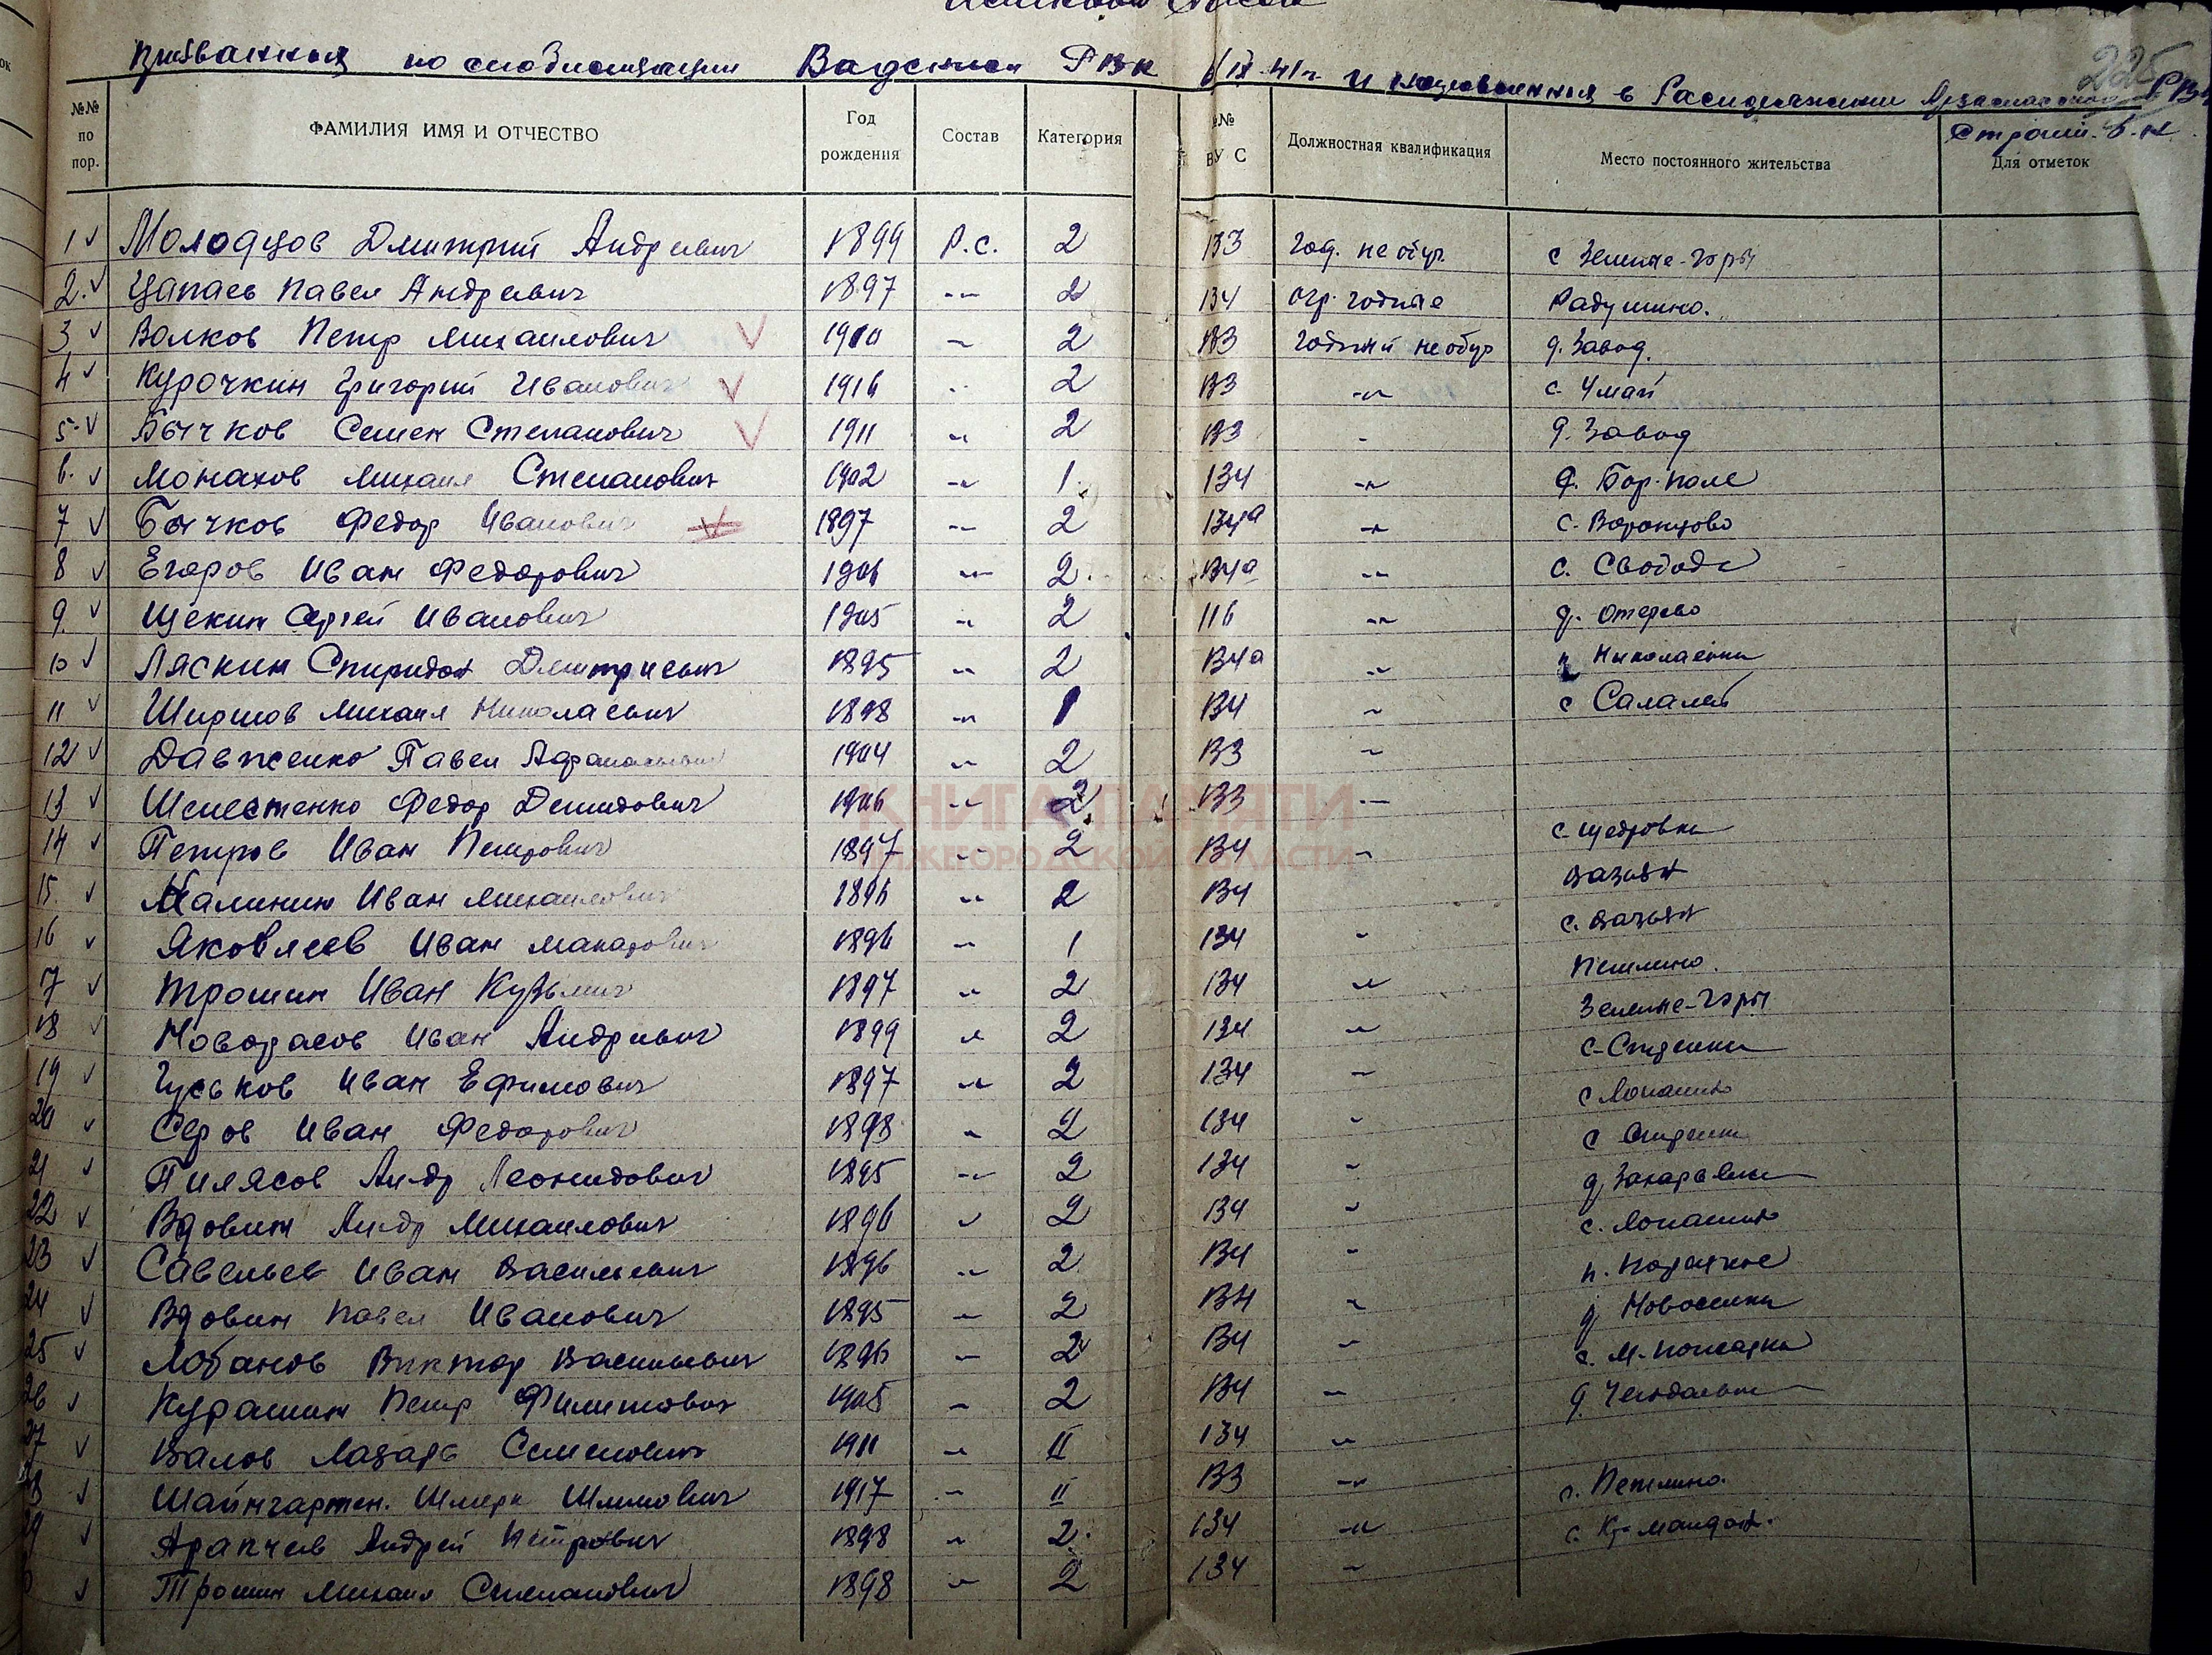 Именной список
призванных по мобилизации Вадским РВК 6/IX-41г и направленных в Распоряжение Арзамасского РВК
225
Строит. б-н
№№ по пор. ФАМИЛИЯ ИМЯ И ОТЧЕСТВО Год рождения Состав Категория №№ ВУС Должностная квалификация Место постоянного жительства Для отметок
1 Молодцов Дмитрий Андреевич 1899 Р.с. 2 133 год. не обуч с Зеленые-Горы
2. Цапаев Павел Андреевич 1897 -"- 2 134 огр. годные Радушино.
3 Волков Петр Михаилович 1910 -"- 2 133 годный не обуч д. Завод.
4 Курочкин Григорий Иванович 1916 -"- 2 133 -"- с. Умай
5 Бычков Семен Степанович 1911 -"- 2 133 - д. Завод
6. Монахов Михаил Степанович 1902 -"- 1 134 -"- д. Бор-поле
7 Бычков Федор Иванович 1897 -"- 2 134а -"- с. Воронцово
8 Егоров Иван Федорович 1906 -"- 2 134а -"- с. Свобода
9. Щекин Сергей Иванович 1905 -"- 2 116 -"- д. Отерево
10 Ляскин Спиридон Дмитриевич 1895 -"- 2 134а -"- Николаевка
11 Ширшов Михаил Николаевич 1898 -"- 1 134 -"- с Салалей
12 Давженко Павел Афанасьевич 1904 -"- 2 133 -"-
13 Шелестенко Федор Демидович 1906 -"- 2 133 -"-
14 Петров Иван Петрович 1897 -"- 2 134 -"- с-Щедровка
15. Калинин Иван Михаилович 1896 -"- 2 134 Вазьян
16 Яковлев Иван Макарович 1896 -"- 1 134 -"- с. Вазьян
17 Трошин Иван Кузьмич 1897 -"- 2 134 -"- Петлино.
18 Иван Андреевич 1899 -"- 2 134 -"- Зеленые-Горы
19 Гуськов Иван Ефимович 1897 -"- 2 134 -"- с-Студенец
20 Серов Иван Федорович 1898 -"- 2 134 -"- с Лопатино
21 Пилясов Андр Леонидович 1895 -"- 2 134 -"- с Студенец
22 Вдовин Андр Михаилович 1896 -"- 2 134 -"- д Захарьевка
23 Савельев Иван Васильевич 1896 -"- 2 134 -"- с. Лопатино
24 Вдовин Павел Иванович 1895 -"- 2 134 -"- п.
25 Лобанов Виктор Васильевич 1896 -"- 2 134 -"- д Новоселки
26 Курашин Петр Филиппович 1905 -"- 2 134 -"- с. М-Пожарки
27 Валов Лазарь Семенович 1911 -"- II 134 -"- д.
28 Шайнгартен. Шлиович 1917 -"- II 133 -"-
29 Арапчев Андрей Петрович 1898 -"- 2 134 -"- Петлино.
Трошин Михаил Степанович 1898 -"- 2 134 -"- с.
КНИГА ПАМЯТИ
НИЖЕГОРОДСКОЙ ОБЛАСТИ